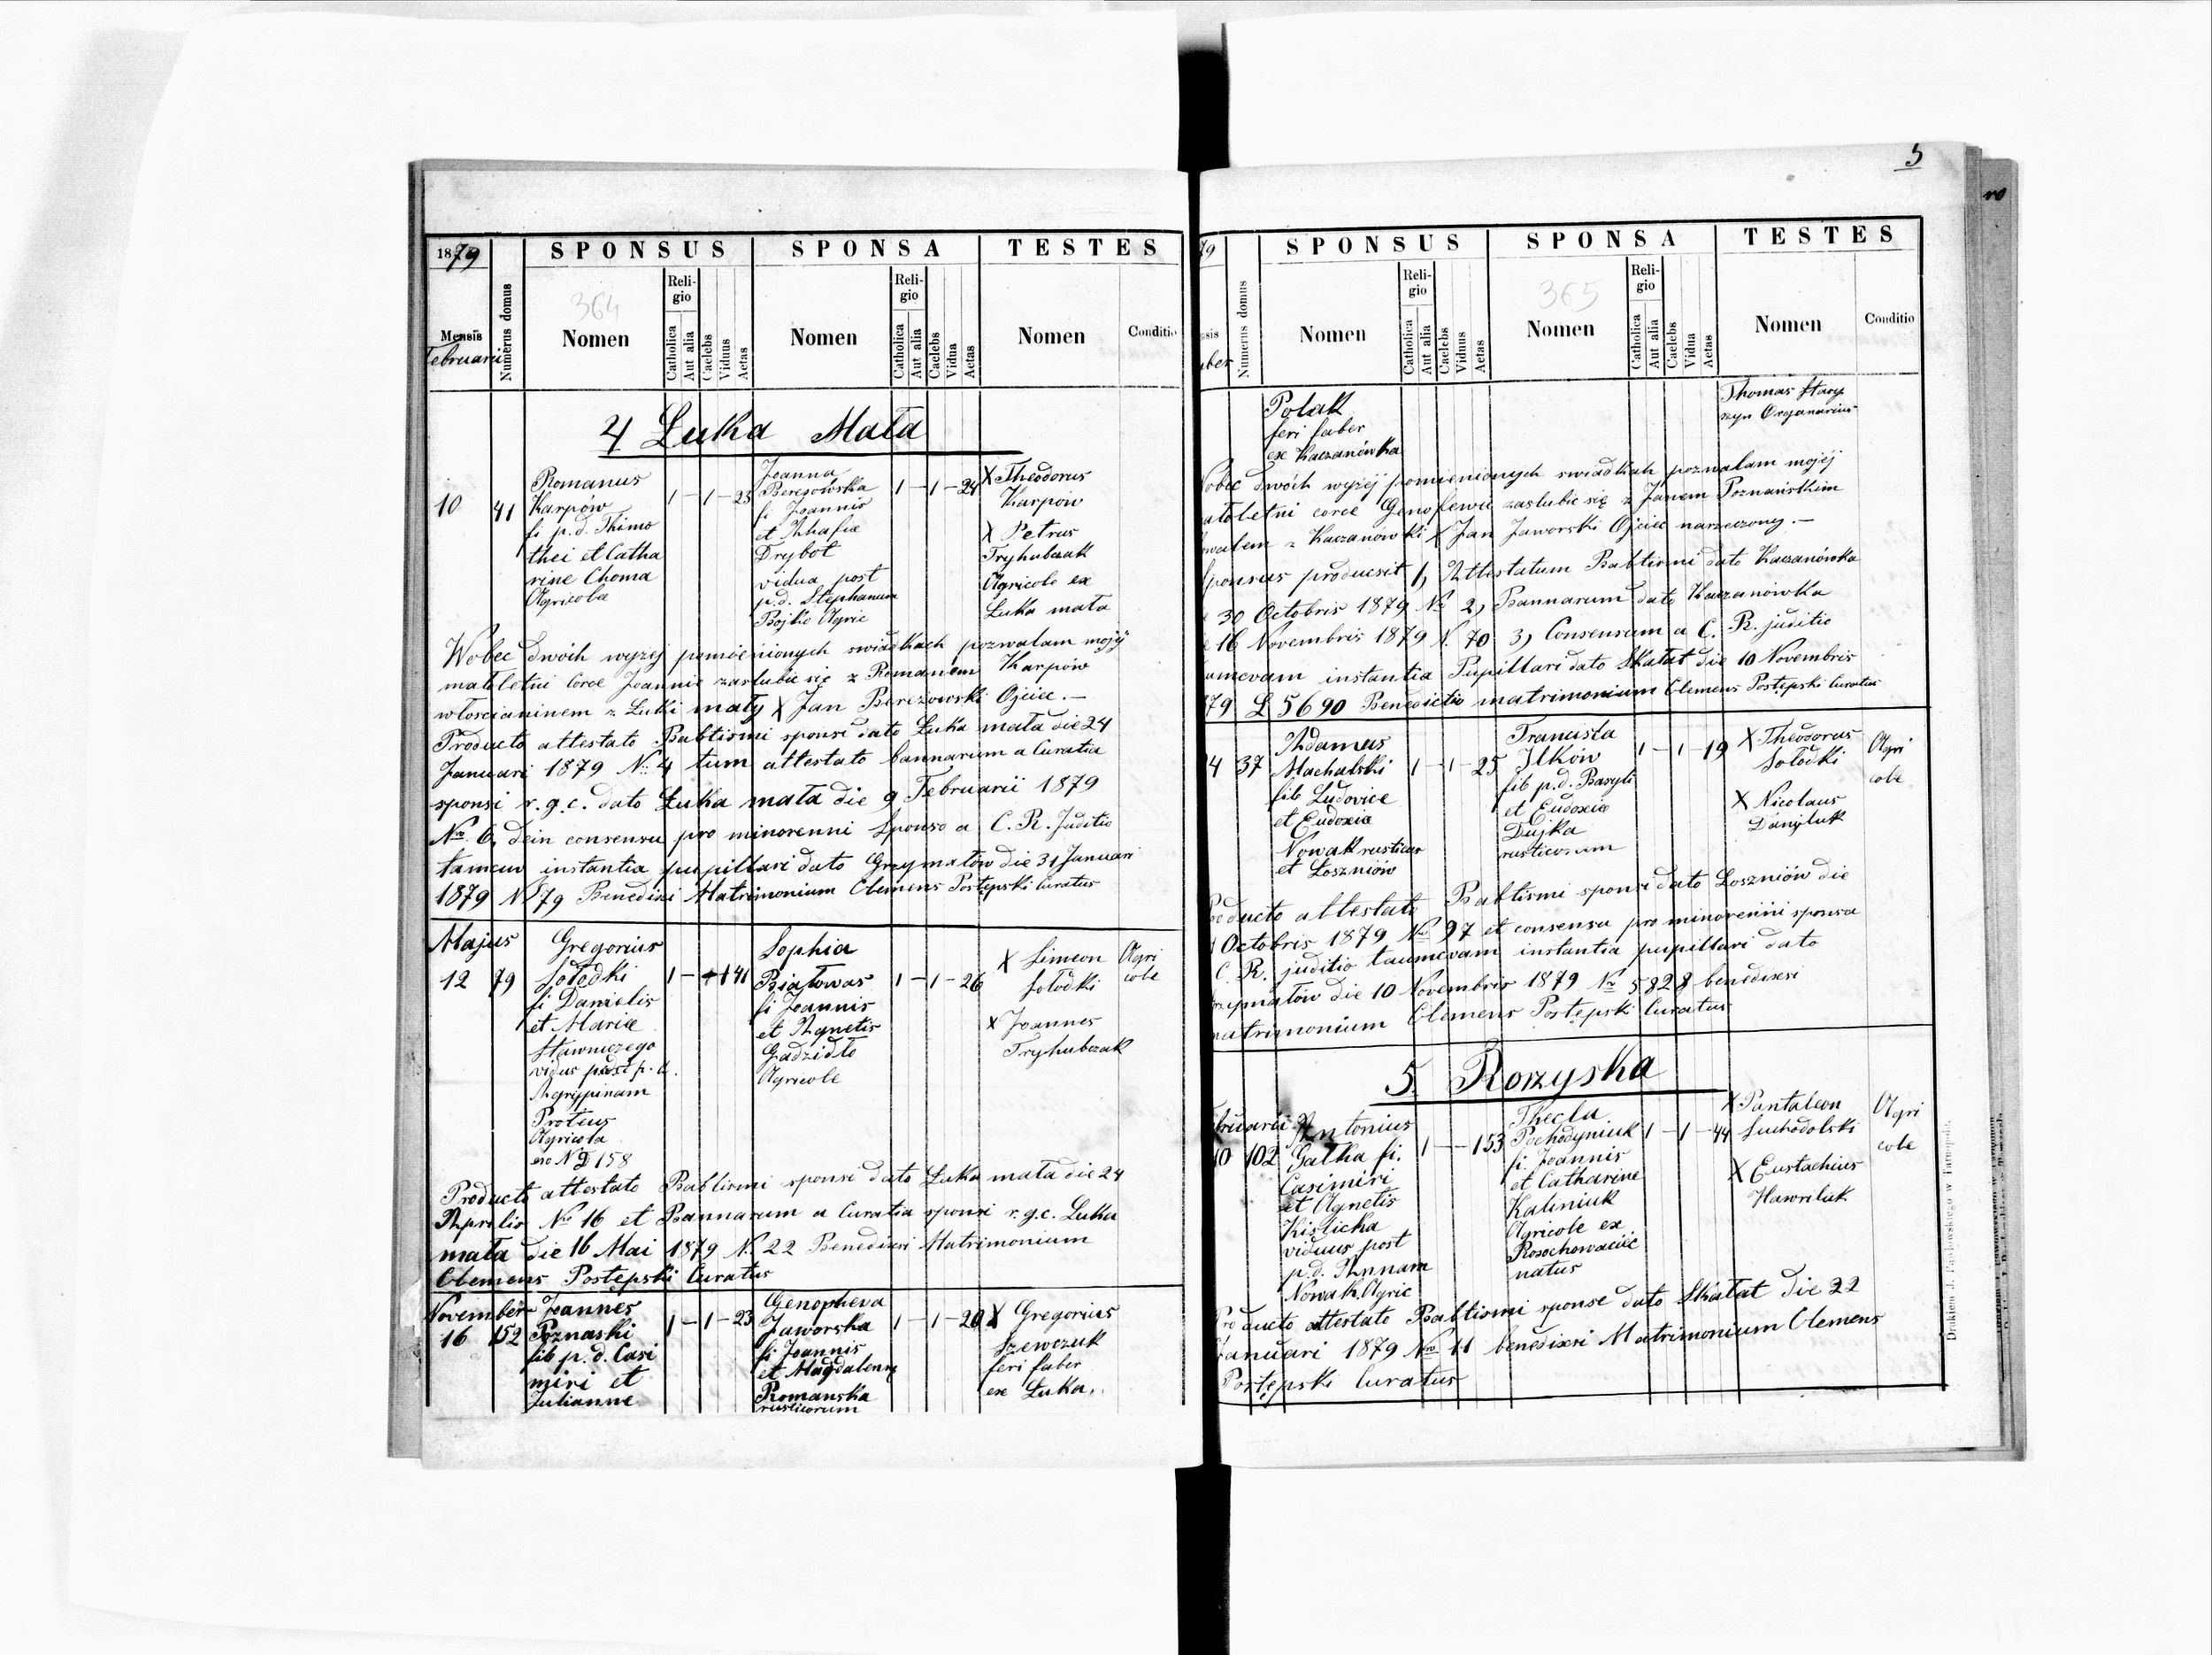 1879
SPONSUS
SPONSA
TESTES
Mensis
Februarii
Numerus domus
364
Nomen
Religio
Catholica
Aut alia
Caelebs
Viduus
Aetas
Nomen
Religio
Catholica
Aut alia
Caelebs
Vidua
Aetas
Nomen
Conditio
4 Luka Mała
10 41
Romanus
Karpów
fi p.d. Thimo
thei et Catha
rine Choma
Agricolae
1 - 1 - 23
Joanna
Berezowska
fi Joannis
et
Drybot
vidua post
p.d. Stephanum
Bojko Agric
1 - 1 - 24
X Theodorus
Karpów
X Petrus
Tryhubczak
Agricole ex
Luka mała
Wobec dwóch wyzej pomienionych swiadkach pozwalam mojej
małoletni corce Joannie zaslubic się z Romanem Karpów
włoscianinem z Luki mały X Jan Berezowski Ojciec. —
Producto attestato Babtismi sponsi dato Łuka mała die 24
Januari 1879 No 4 tum attestato bannarum a Curatia
sponsi r.g.c. dato Łuka mała die 9 Februarii 1879
Nro 6, dein consensu pro minorenni Sponso a C. R. Juditio
tamcw instantia pupillari dato Grzymałów die 31 Januari
1879 N 79 Benedixi Matrimonium Clemens Postępski Curatus
Majus
12 79
Gregorius
Sołodki
fi Danielis
et Marice
Sławniczego
vidus post p.d.
Agrippinam
Proteus
Agricola
ex N D 158
1 - 1 41
Sophia
Białowas
fi Joannis
et Agnetis
Gadzidło
Agricole
1 - 1 - 26
X Simeon
Sołodki
X Joannes
Tryhubczak
Agri
cole
Producto attestato Babtismi sponsi dato Łuka mała die 24
Aprilis Nro 16 et Bannarum a Curatia sponsi r.g.c. Luka
mała die 16 Mai 1879 N. 22 Benedixi Matrimonium
Clemens Postępski Curatus
November
16 152
Joannes
Poznaski
fib p.d. Casi
miri et
Julianne
1 - 1 - 23
Genopheva
Jaworska
fi Joannis
et Magdalenne
Romanska
rusticorum
1 - 1 - 20
X Gregorius
Szewczuk
feri faber
ex Łuka,
5
79
SPONSUS
SPONSA
TESTES
sis
ber
Numerus domus
Nomen
Religio
Catholica
Aut alia
Caelebs
Viduus
Aetas
365
Nomen
Religio
Catholica
Aut alia
Caelebs
Vidua
Aetas
Nomen
Conditio
Polak
feri faber
ex Kaczanówka
Thomas Stary
szyn Organarius
obec dwóch wyzej pomienionych swiadkah pozwalam mojej
atoletni corce Genofewie zaslubic się z Janem Poznańskim
walem z Kaczanówki X Jan Jaworski Ojciec narzeczony. —
Sponsus producsit 1, Attestatum Babtismi dato Kaczanówka
30 Octobris 1879 No 2, Bannarum dato Kaczanówka
e 16 Novembris 1879 N. 70 3, Consensum a C. R. juditio
umcvam instantia Pupillari dato Skałat die 10 Novembris
79 L 5690 Benedictio matrimonium Clemens Postępski Curatus
4 37
Adamus
Machalski
fib Ludovice
et Eudoxia
Nowak rusticor
et Łoszniów
1 - 1 - 25
Franciska
Ilków
fib p.d. Basyli
et Eudoxia
Dujka
rusticorum
1 - 1 - 19
X Theodorus
Sołodki
X Nicolaus
Danyluk
Agri
cole
oducto attestato Babtismi sponsi dato Łoszniów die
Octobris 1879 No 97 et consensu pro minorenni sponsa
C. R. juditio taumcvam instantia pupillari dato
zymałów die 10 Novembris 1879 No 5828 benedixsi
matrimonium Clemens Postępski Curatus
5 Rorzyska
bruarii
10 102
Antonius
Gałka fi.
Casimiri
et Agnetis
Kislicka
viduus post
p.d. Annam
Nowak Agric
1 - - 1 53
Thecla
Pochodyniuk
fi. Joannis
et Catharine
Kaliniuk
Agricole ex
Rosochowaciec
natus
1 - 1 - 44
X Pantaleon
Suchodolski
X Eustachius
Hawriluk
Agri
cole
oducto attestato Babtismi sponse dato Skałat die 22
Januari 1879 Nro 11 benedixsi Matrimonium Clemens
Postępski Curatus